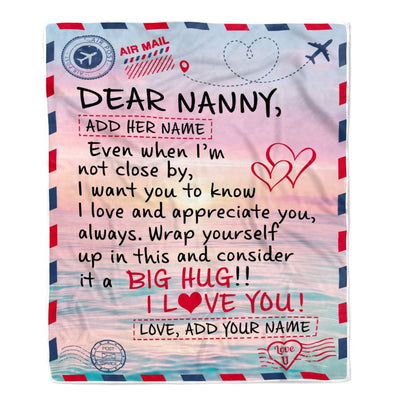 AIR MAIL
DEAR NANNY,
ADD HER NAME
Even when I'm
not close by,
I want you to know
I love and appreciate you,
always. Wrap yourself
up in this and consider
it a BIG HUG!!
I L♥VE YOU!
LOVE, ADD YOUR NAME
Love
U